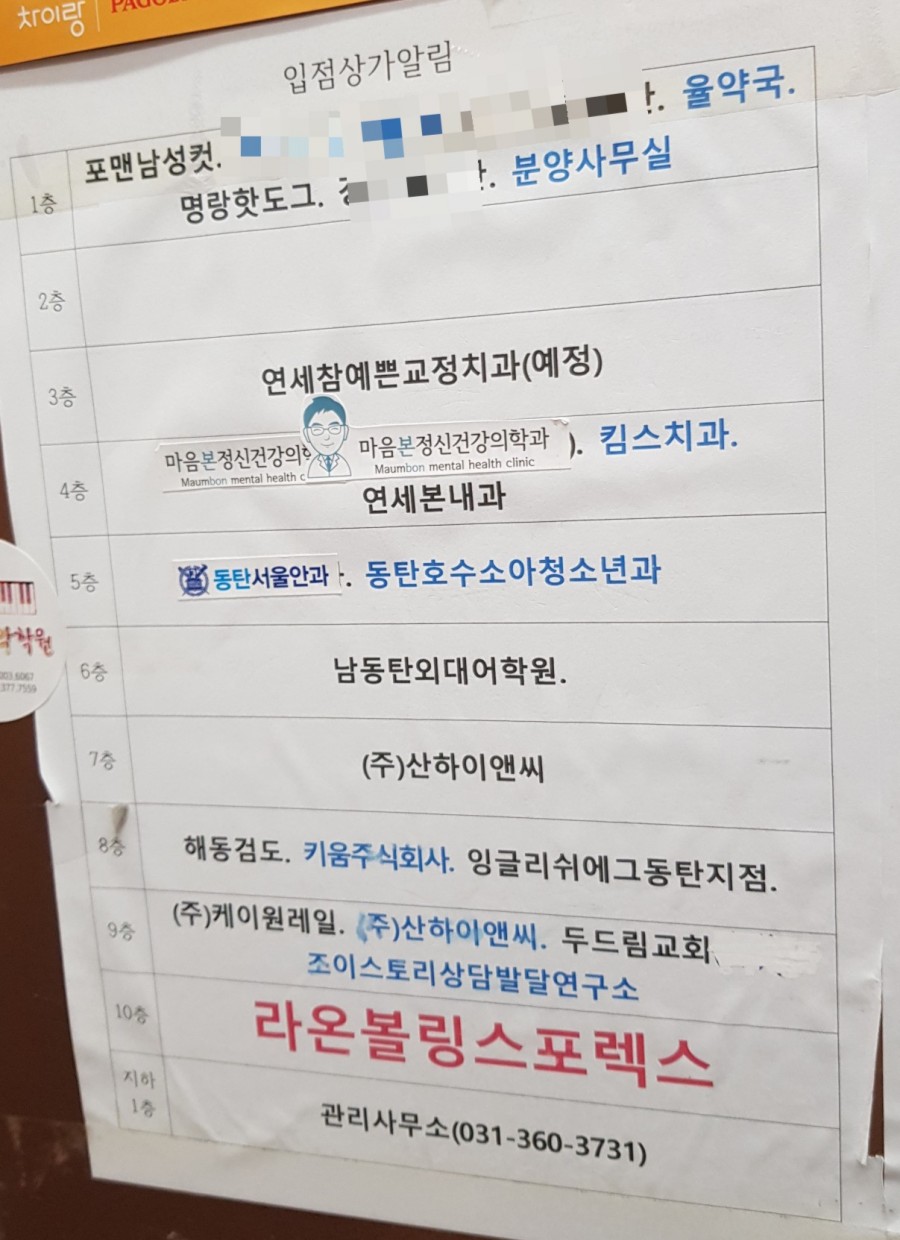 차이랑
입점상가알림
1층
포맨남성컷. 율약국.
명랑핫도그. 분양사무실
2층
3층
연세참예쁜교정치과(예정)
4층
마음본정신건강의학 마음본정신건강의학과 ). 킴스치과.
Maumbon mental health c Maumbon mental health clinic
연세본내과
5층
동탄서울안과. 동탄호수소아청소년과
6층
남동탄외대어학원.
7층
(주)산하이앤씨
8층
해동검도. 키움주식회사. 잉글리쉬에그동탄지점.
9층
(주)케이원레일. (주)산하이앤씨. 두드림교회
조이스토리상담발달연구소
10층
라온볼링스포렉스
지하
1층
관리사무소(031-360-3731)
학원
003.6067
377.7559